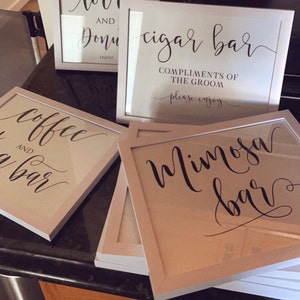 AND
Donu
cigar bar
COMPLIMENTS OF
THE GROOM
please enjoy
coffee
AND
bar
Mimosa
bar